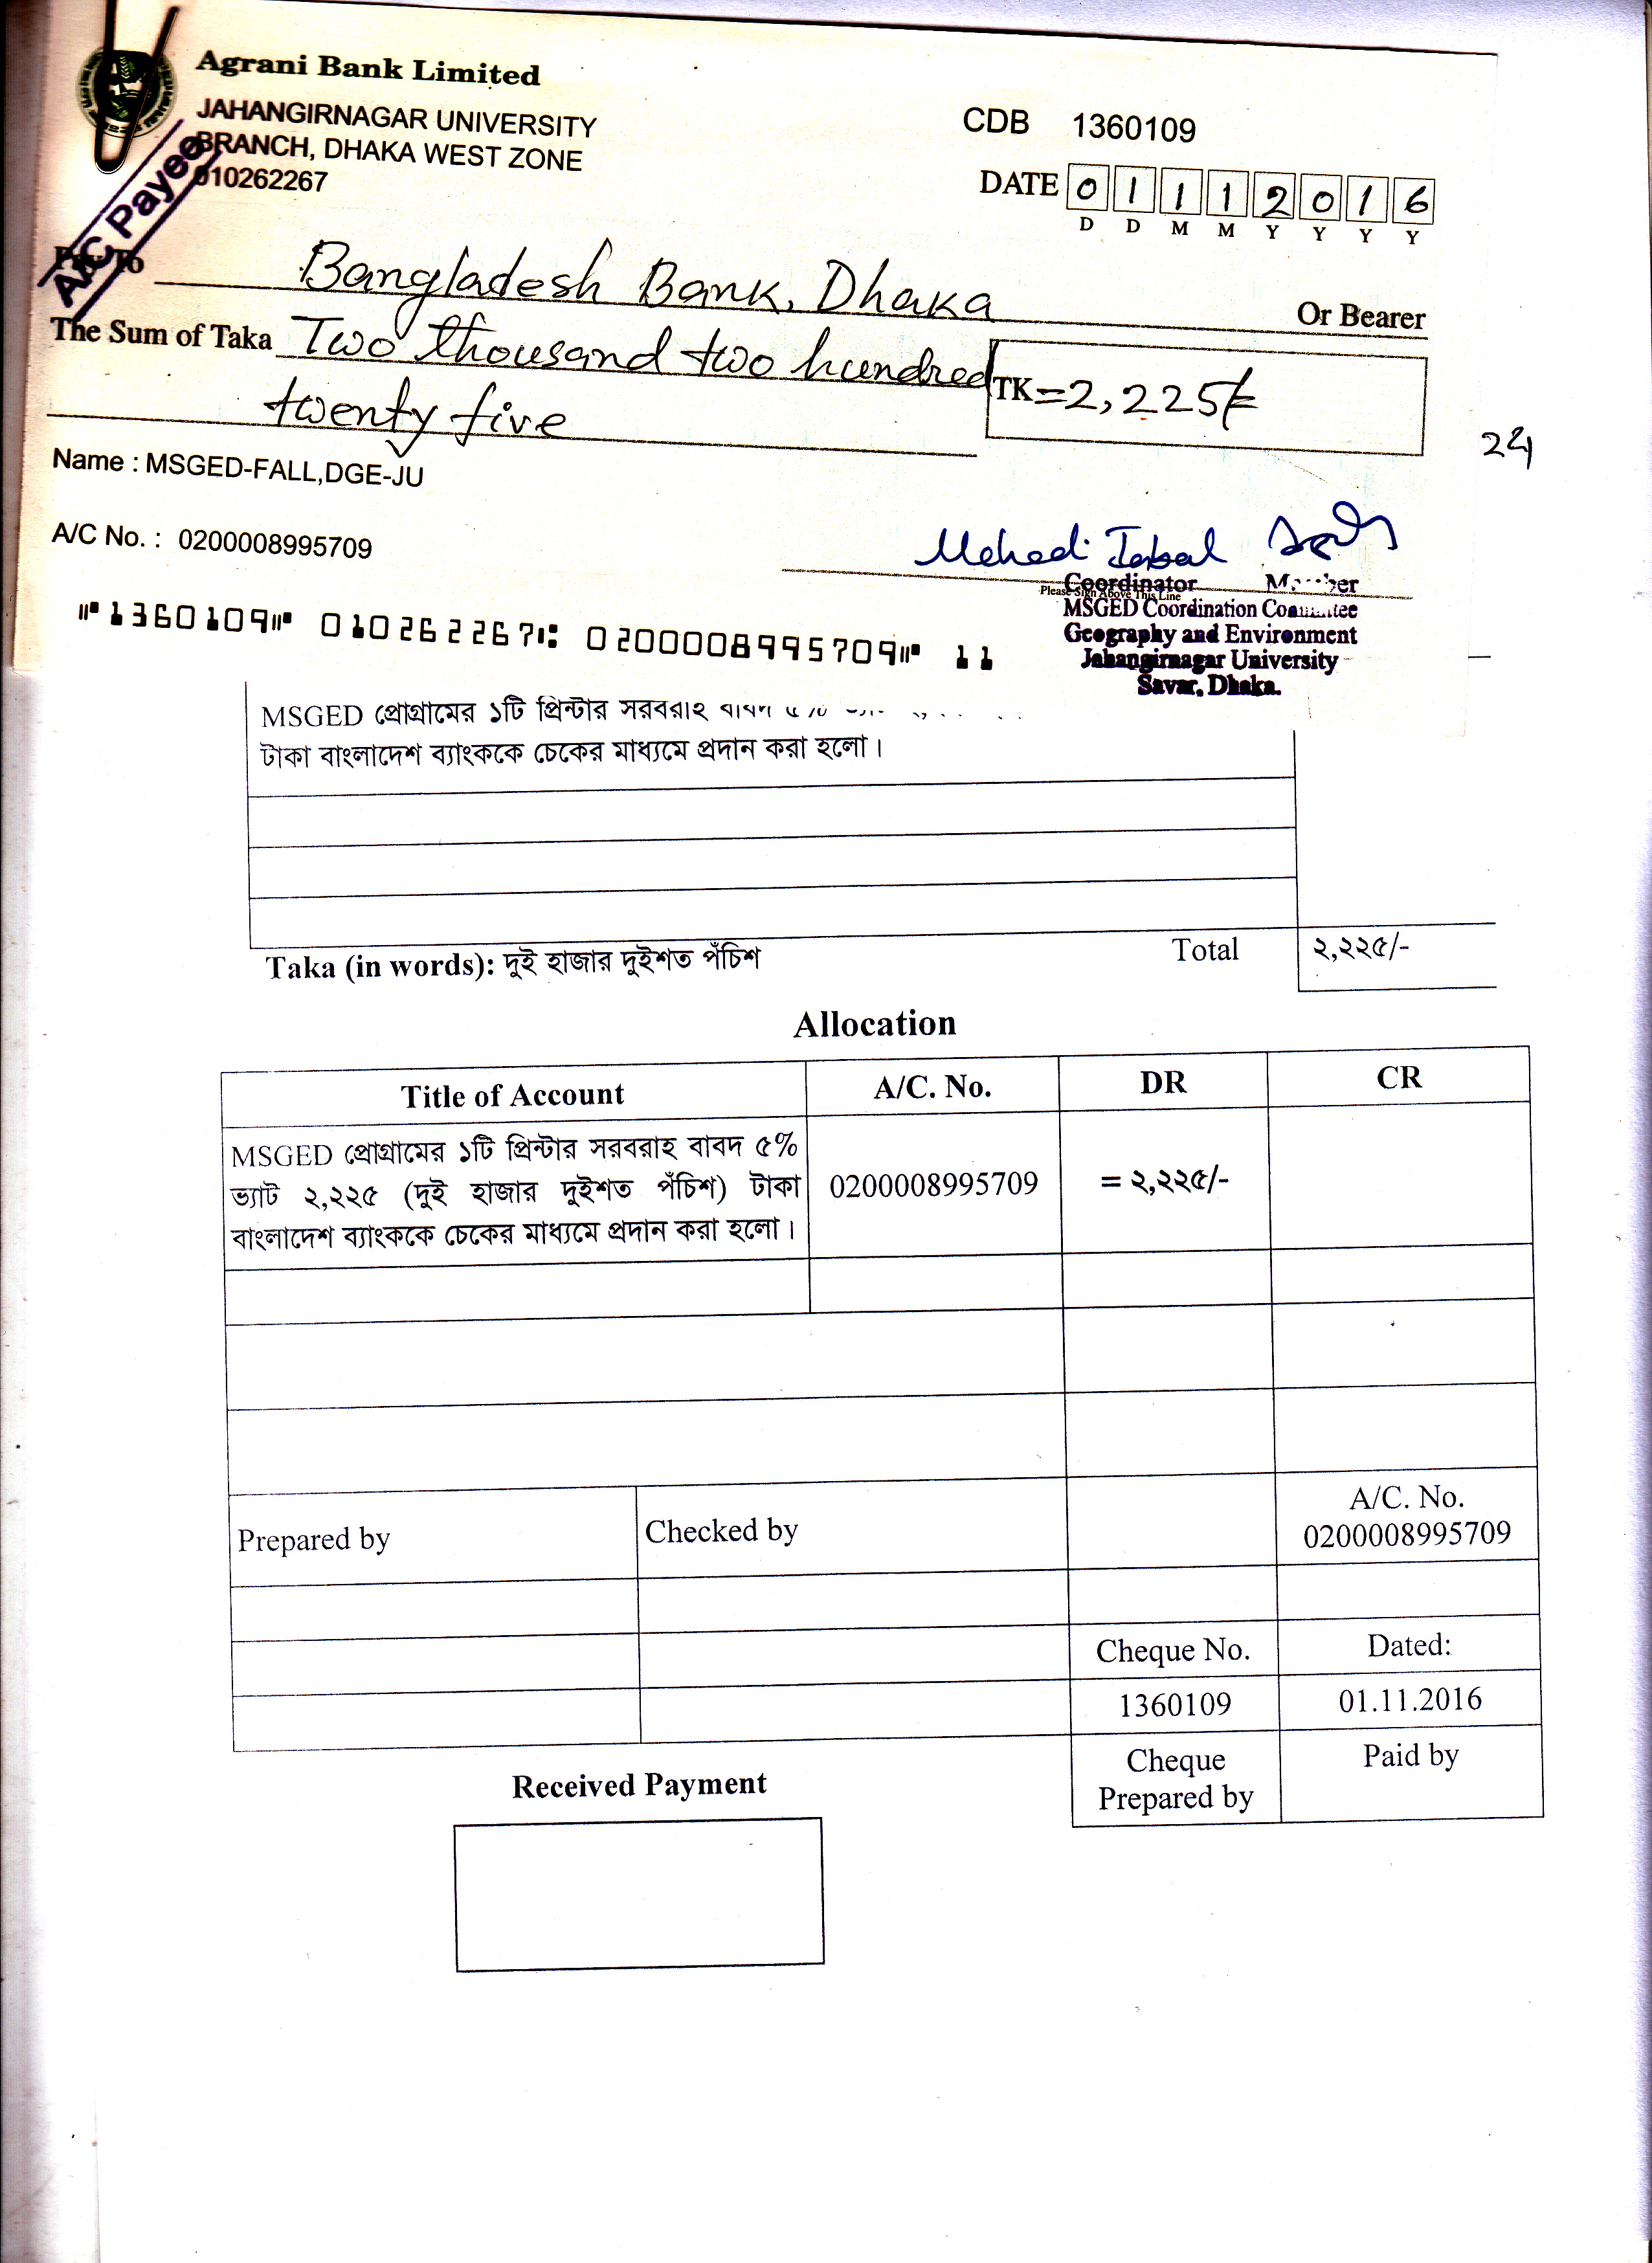 Agrani Bank Limited
JAHANGIRNAGAR UNIVERSITY
BRANCH, DHAKA WEST ZONE
010262267
A/C Payee
CDB 1360109
DATE 0 1 1 1 2 0 1 6
D D M M Y Y Y Y
Pay To Bangladesh Bank, Dhaka Or Bearer
The Sum of Taka Two thousand two hundred
twenty five
TK =2,225/=
Name : MSGED-FALL,DGE-JU
A/C No. : 0200008995709
Mehedi Iqbal
Please Sign Above This Line
Coordinator Member
MSGED Coordination Committee
Geography and Environment
Jahangirnagar University
Savar, Dhaka.
⑈1360109⑈ 010262267⑆ 0200008995709⑈ 11
MSGED প্রোগ্রামের ১টি প্রিন্টার সরবরাহ বাবদ ৫%
টাকা বাংলাদেশ ব্যাংককে চেকের মাধ্যমে প্রদান করা হলো।
Taka (in words): দুই হাজার দুইশত পঁচিশ Total ২,২২৫/-
Allocation
Title of Account A/C. No. DR CR
MSGED প্রোগ্রামের ১টি প্রিন্টার সরবরাহ বাবদ ৫%
ভ্যাট ২,২২৫ (দুই হাজার দুইশত পঁচিশ) টাকা 0200008995709 = ২,২২৫/-
বাংলাদেশ ব্যাংককে চেকের মাধ্যমে প্রদান করা হলো।
Prepared by Checked by A/C. No.
0200008995709
Cheque No. Dated:
1360109 01.11.2016
Cheque Paid by
Prepared by
Received Payment